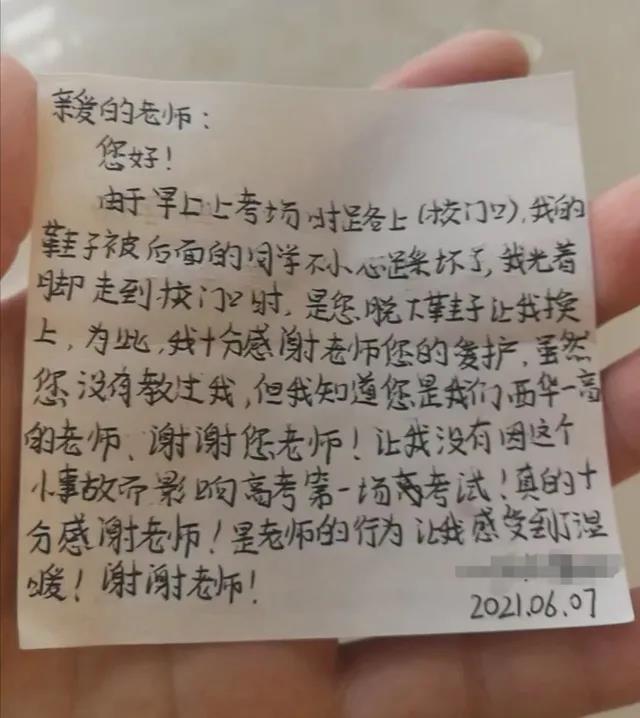 亲爱的老师:
您好!
由于早上上考场时路上(校门口),我的
鞋子被后面的同学不小心踩坏了,我光着
脚走到校门口时,是您脱下鞋子让我换
上,为此,我十分感谢老师您的爱护,虽然
您没有教过我,但我知道您是我们西华一高
的老师、谢谢您老师!让我没有因这个
小事故而影响高考第一场考试!真的十
分感谢老师!是老师的行为让我感受到了温
暖!谢谢老师!
2021.06.07